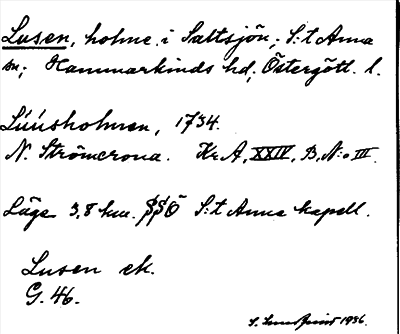 Lusen, holme i Saltsjön; S:t Anna
sn; Hammarkinds hd, Östergötl. l.
Lúúsholmen, 1734.
N. Strömcrona. Kr.A, XXIV, B, N:o III.
Läge 3,8 km. SSÖ S:t Anna kapell.
Lusen ek.
G. 46.
S. 1936.